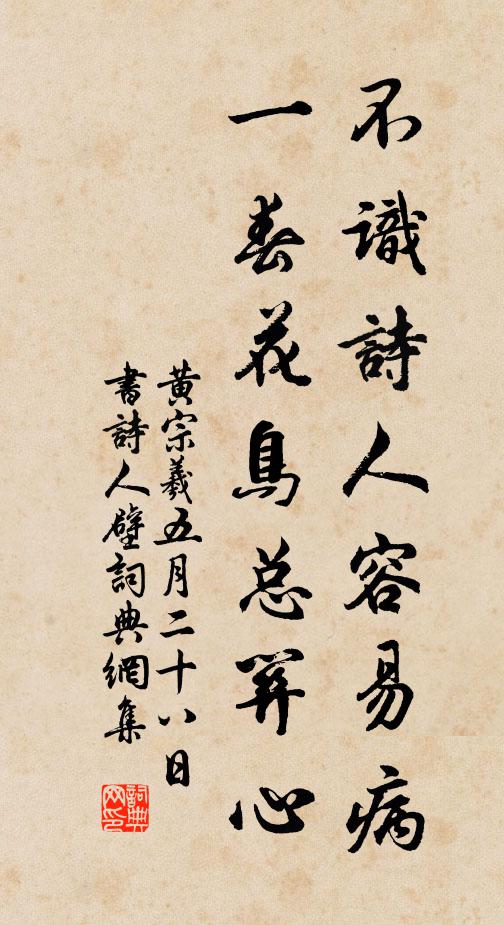 不識詩人容易病
一春花鳥总關心
黃宗羲五月二十八日
書詩人壁詞典網集
詞典网印